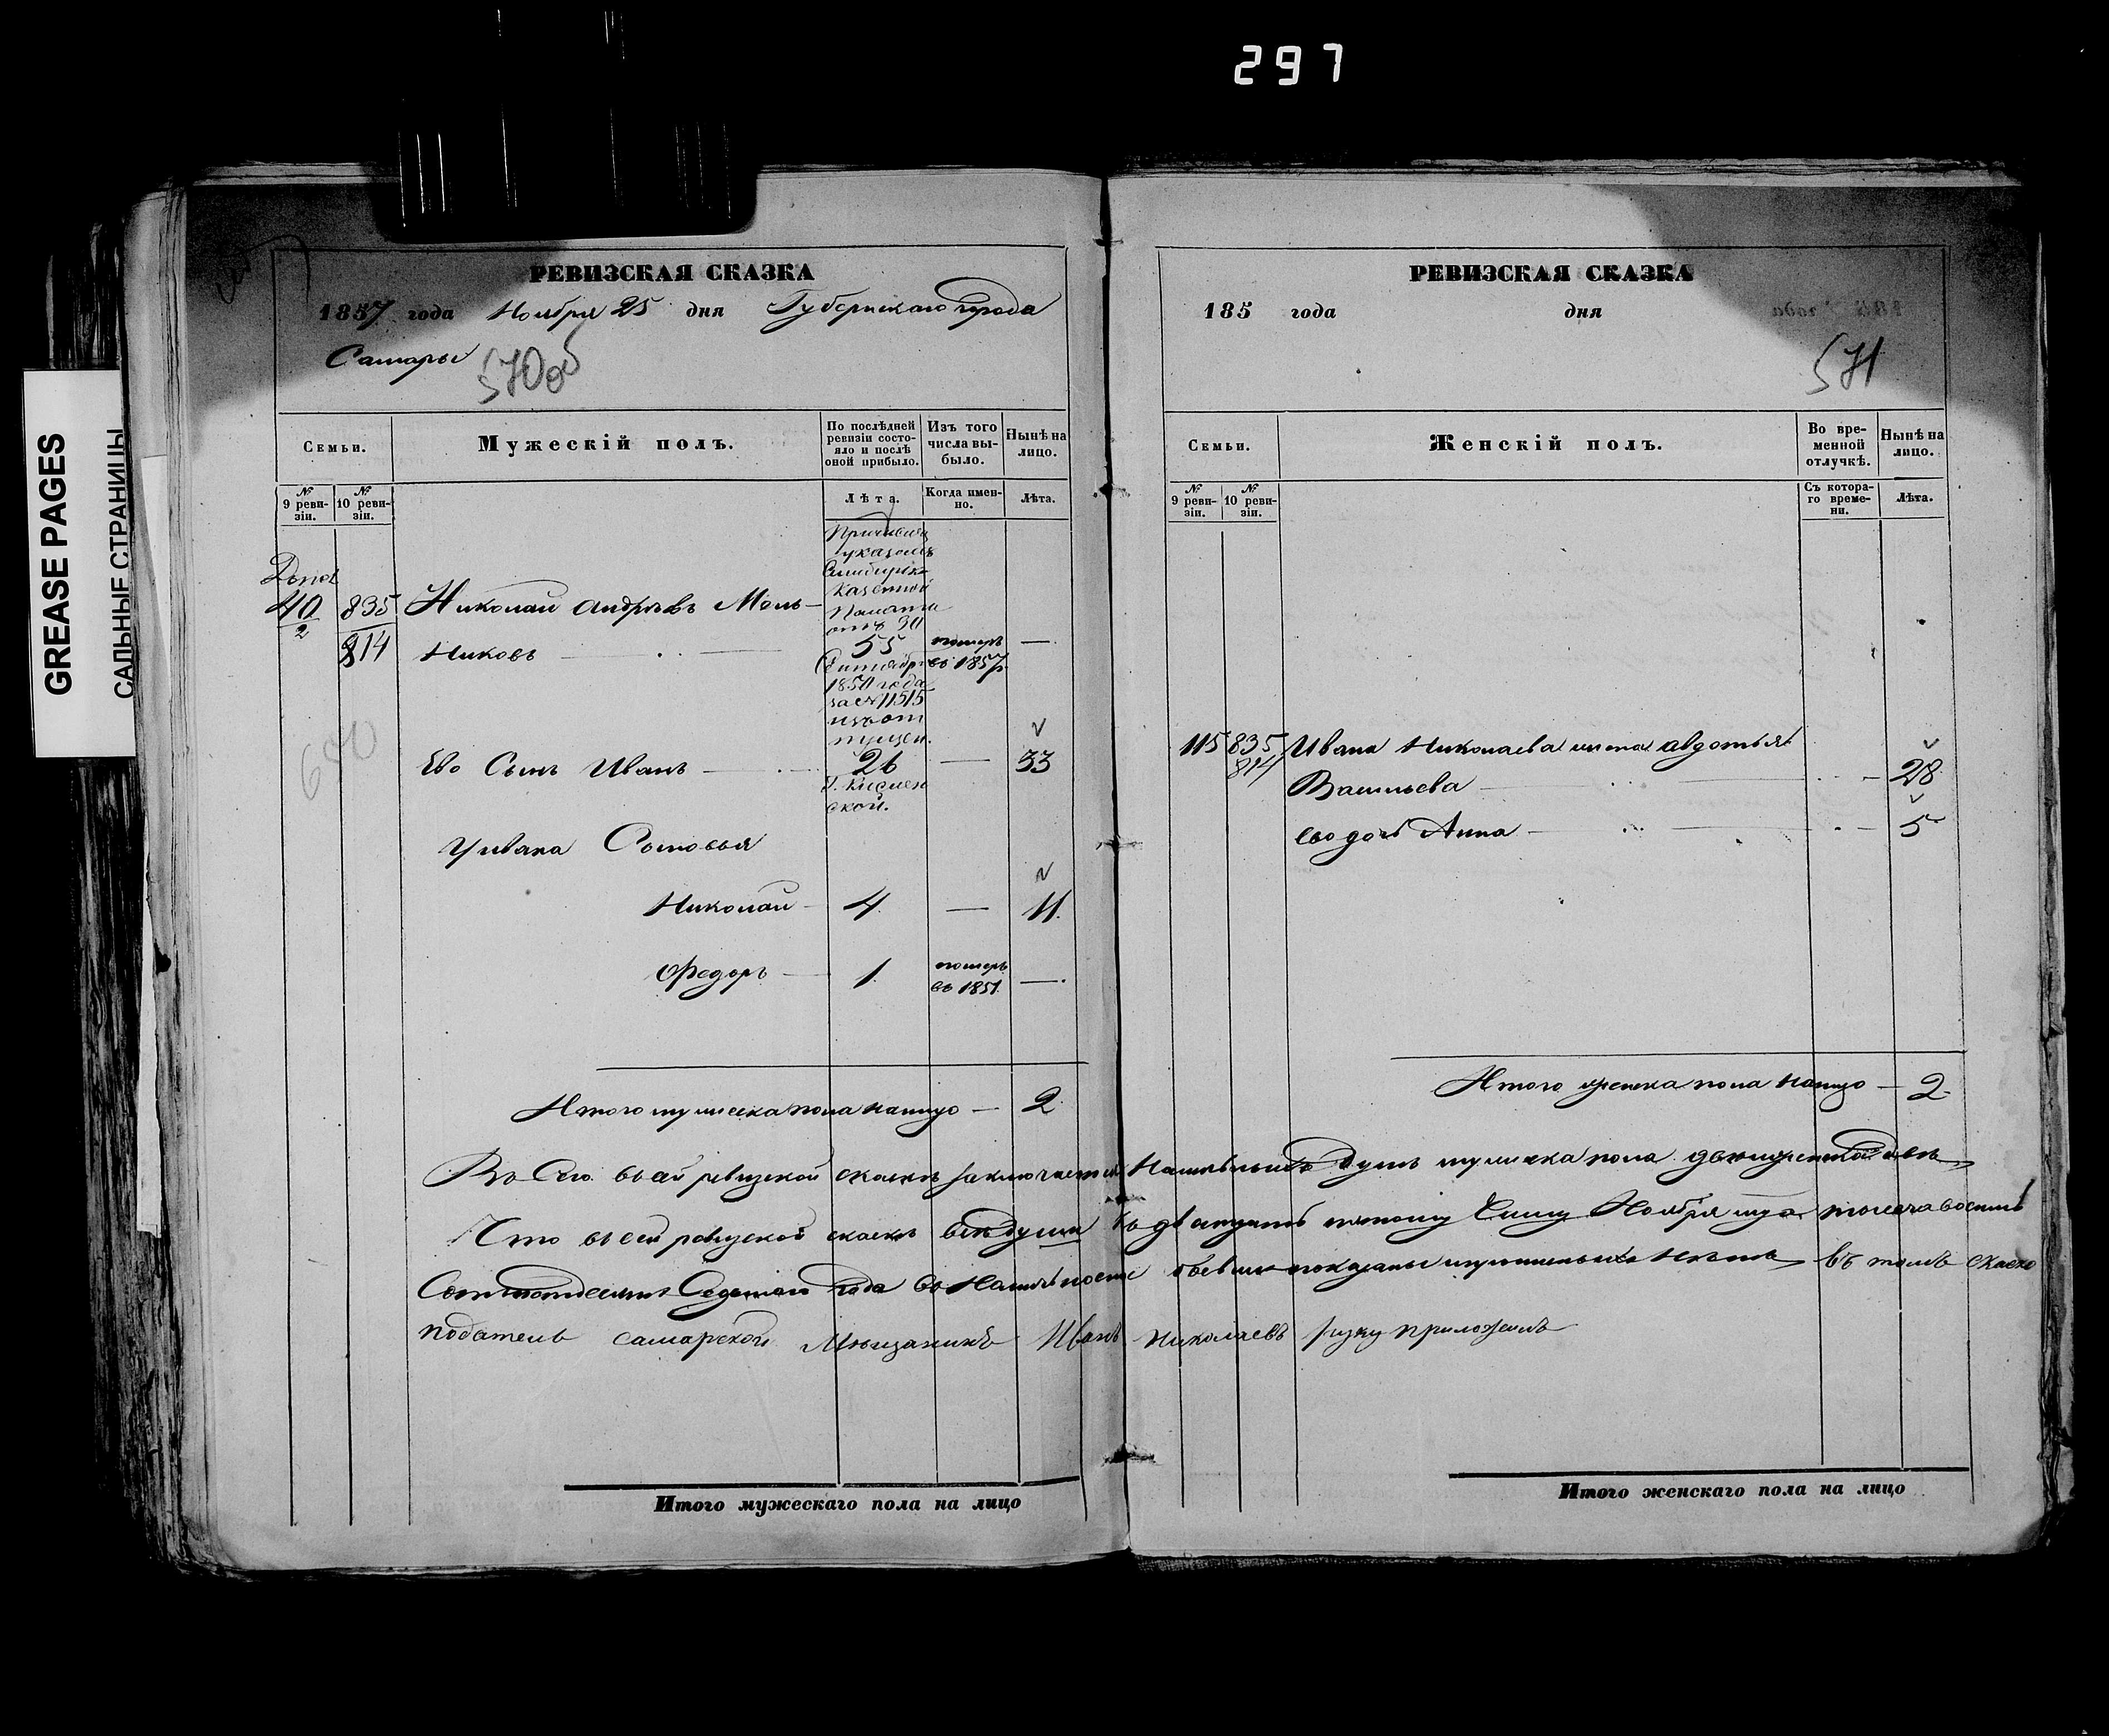 297
GREASE PAGES
САЛЬНЫЕ СТРАНИЦЫ
РЕВИЗСКАЯ СКАЗКА
1857 года Ноября 25 дня Губернскаго города
Самары
570об
Семьи.
Мужескій полъ.
По послѣдней ревизіи состояло и послѣ оной прибыло.
Изъ того числа выбыло.
Нынѣ на лицо.
№ 9 ревизіи.
№ 10 ревизіи.
Лѣта.
Когда именно.
Лѣта.
Причислен
указомъ
Симбирск
Казенной
Палаты
отъ 30
40/2 835 Николай Андреевъ Мель-
814 никовъ 55 померъ въ 1857 —
1850 года
за № 11515
изъ от
пущен.
640
Ево Сынъ Иванъ 26 — 33
У Ивана Сыновья
Николай 4 — 11.
Федоръ 1 померъ въ 1851 —
Итого мужеска пола налицо — 2
Итого мужескаго пола на лицо
РЕВИЗСКАЯ СКАЗКА
185 года дня
571
Семьи.
Женскій полъ.
Во временной отлучкѣ.
Нынѣ на лицо.
№ 9 ревизіи.
№ 10 ревизіи.
Съ котораго времени.
Лѣта.
115 835 Ивана Николаева жена авдотья
814 Васильева — 28
ево дочь Анна — 5
Итого женска пола налицо — 2
ревизской скаскѣ заключается Наличныхъ душъ мужеска пола две женска две
Что в сей ревизской скаскѣ все души къ двадцать пятому числу Ноября тысяча восемь
Сотъ пятдесятъ Седьмаго года въ Наличности бывшие показаны въ томъ скаску
податель самарской Мещанинъ Иванъ Николаевъ руку приложилъ
Итого женскаго пола на лицо